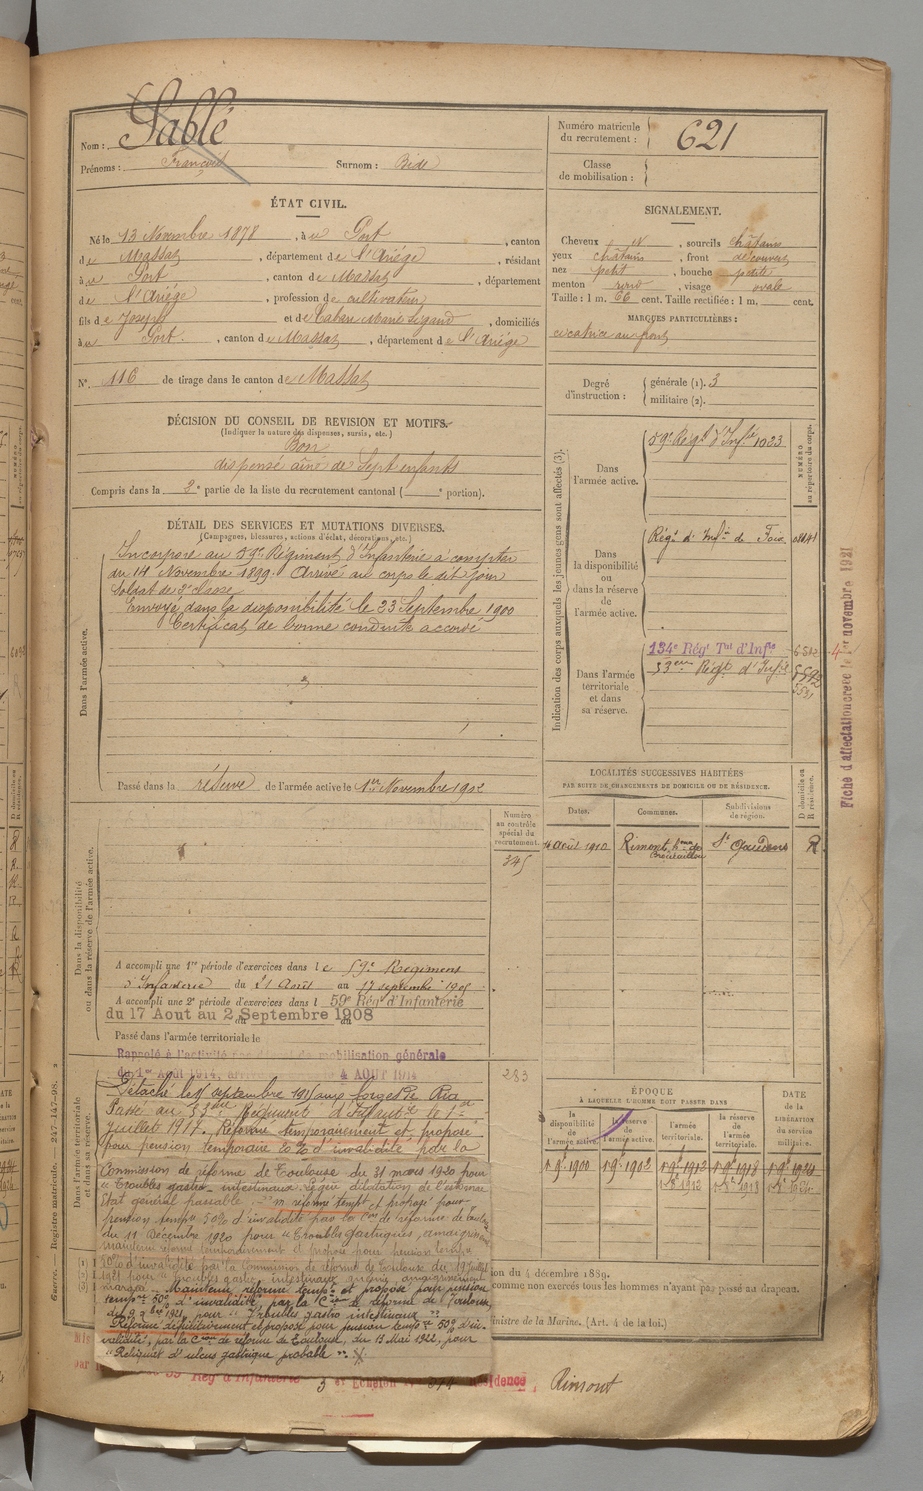 Nom : Sablé
Prénoms : François Surnom : Bide
Numéro matricule du recrutement : 621
Classe de mobilisation :
ÉTAT CIVIL.
Né le 13 Novembre 1878, à Port, canton
de Massat, département de l'Ariège, résidant
à Port, canton de Massat, département
de l'Ariège, profession de cultivateur
fils de Joseph et de Cabare Marie, domiciliés
à Port, canton de Massat, département de l'Ariège
N° 116 de tirage dans le canton de Massat
SIGNALEMENT.
Cheveux N, sourcils châtains
yeux châtains, front découvert
nez petit, bouche petite
menton rond, visage ovale
Taille : 1 m. 66 cent. Taille rectifiée : 1 m. cent.
MARQUES PARTICULIÈRES :
cicatrice au front
Degré d'instruction : générale (1). 3
militaire (2).
DÉCISION DU CONSEIL DE REVISION ET MOTIFS.
(Indiquer la nature des dispenses, sursis, etc.)
Bon
dispensé aîné de Sept enfants
Compris dans la 2e partie de la liste du recrutement cantonal ( e portion).
DÉTAIL DES SERVICES ET MUTATIONS DIVERSES.
(Campagnes, blessures, actions d'éclat, décorations, etc.)
Dans l'armée active.
Incorporé au 59e Régiment d'Infanterie à compter
du 14 Novembre 1899. Arrivé au corps le dit jour
Soldat de 2e classe
Envoyé dans la disponibilité le 23 Septembre 1900
Certificat de bonne conduite accordé
Passé dans la réserve de l'armée active le 1er Novembre 1902
Indication des corps auxquels les jeunes gens sont affectés (3).
NUMÉRO au répertoire du corps.
Dans l'armée active.
59e Régt d'Infie 1023
Dans la disponibilité ou dans la réserve de l'armée active.
Régt d'Infie de Foix
Dans l'armée territoriale et dans sa réserve.
134e Régt Tal d'Infie
53eme Régt d'Infie
Fiche d'affectation créée le 1er novembre 1921
LOCALITÉS SUCCESSIVES HABITÉES
PAR SUITE DE CHANGEMENTS DE DOMICILE OU DE RÉSIDENCE.
Dates. Communes. Subdivisions de région. D domicile ou R résidence.
4 Août 1910 Rimont St Gaudens R
Numéro au contrôle spécial du recrutement.
345
Dans la disponibilité ou dans la réserve de l'armée active.
A accompli une 1re période d'exercices dans le 59e Régiment
d'Infanterie du 21 Août au 17 septembre 1905
A accompli une 2e période d'exercices dans l 59e Rég d'Infanterie
du 17 Aout au 2 Septembre 1908
Passé dans l'armée territoriale le
Rappelé à l'activité mobilisation générale
du 1er Août 1914, 4 AOUT 1914
283
Dans l'armée territoriale et dans sa réserve.
Détaché le septembre 1915 aux forges de Ria
Passé au 53eme Régiment d'Infanterie le 1er
juillet 1917. Réformé temporairement et proposé
pour pension temporaire 20 % d'invalidité par la
Commission de réforme de Toulouse du 31 mars 1920 pour
"Troubles gastro-intestinaux. légère dilatation de l'estomac
Etat général passable" - réformé tempt et proposé pour
pension tempre 50% d'invalidité par la Con de réforme de Toulouse
du 11 Décembre 1920 pour "Troubles gastriques, amaigrissement
maintenu réformé temporairement et proposé pour pension tempre
50% d'invalidité par la Commission de réforme de Toulouse du 19 Juillet
1921 pour "troubles gastro intestinaux anémie amaigrissement
marqué". Maintenu réformé tempre et proposé pour pension
tempre 50% d'invalidité, par la Con de réforme de Toulouse,
du 9 Xbre 1921, pour "Troubles gastro intestinaux".
Réformé définitivement et proposé pour pension tempre 50% d'in-
validité, par la Con de réforme de Toulouse, du 15 Mai 1922, pour
"Reliquat d'ulcus gastrique probable".
ÉPOQUE
À LAQUELLE L'HOMME DOIT PASSER DANS
la disponibilité de l'armée active. la réserve de l'armée active. l'armée territoriale. la réserve de l'armée territoriale.
DATE de la LIBÉRATION du service militaire.
1 9e 1900 1 9e 1902 1 9e 1912 1 9e 1918 1 9e 1924
ion du 4 décembre 1889.
comme non exercés tous les hommes n'ayant pas passé au drapeau.
inistre de la Marine. (Art. 4 de la loi.)
Rég d'Infanterie 3 er Echelon Résidence, Rimont
Guerre. — Registre matricule. 247-147-98.